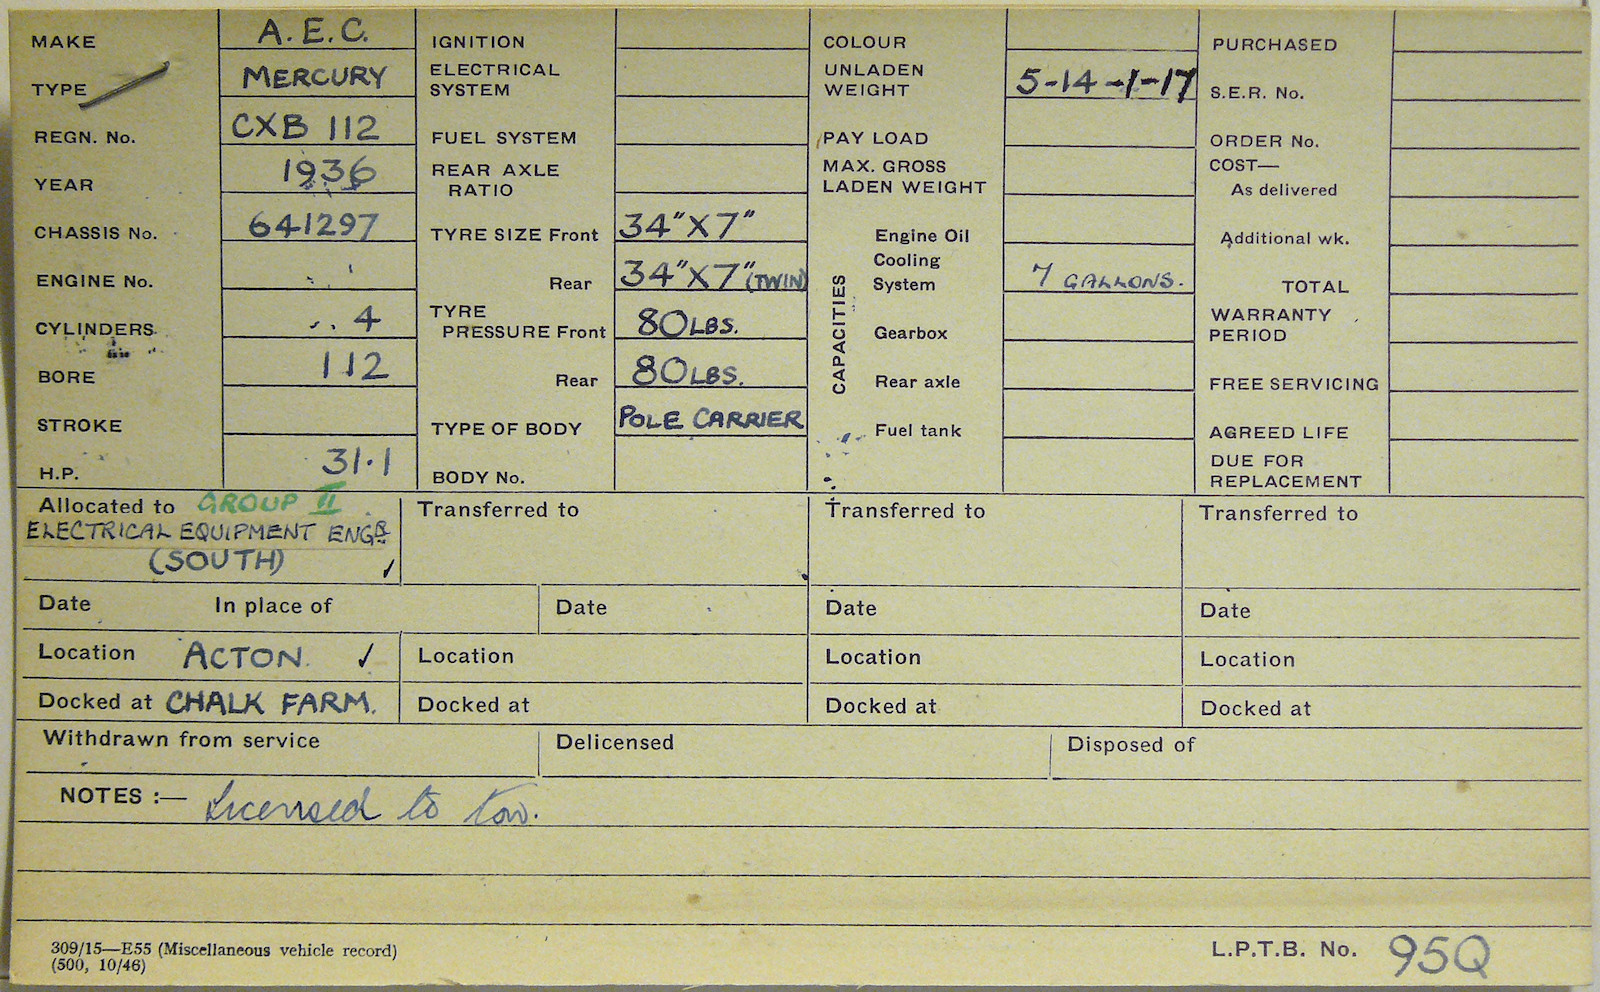 MAKE A.E.C.
TYPE MERCURY
REGN. No. CXB 112
YEAR 1936
CHASSIS No. 641297
ENGINE No.
CYLINDERS 4
BORE 112
STROKE
H.P. 31.1
IGNITION
ELECTRICAL
SYSTEM
FUEL SYSTEM
REAR AXLE
RATIO
TYRE SIZE Front 34"X7"
Rear 34"X7" (TWIN)
TYRE
PRESSURE Front 80LBS.
Rear 80LBS.
TYPE OF BODY POLE CARRIER
BODY No.
COLOUR
UNLADEN
WEIGHT 5-14-1-17
PAY LOAD
MAX. GROSS
LADEN WEIGHT
CAPACITIES
Engine Oil
Cooling
System 7 GALLONS.
Gearbox
Rear axle
Fuel tank
PURCHASED
S.E.R. No.
ORDER No.
COST—
As delivered
Additional wk.
TOTAL
WARRANTY
PERIOD
FREE SERVICING
AGREED LIFE
DUE FOR
REPLACEMENT
Allocated to GROUP II
ELECTRICAL EQUIPMENT ENGR.
(SOUTH)
Transferred to
Transferred to
Transferred to
Date In place of
Date
Date
Date
Location ACTON.
Location
Location
Location
Docked at CHALK FARM.
Docked at
Docked at
Docked at
Withdrawn from service
Delicensed
Disposed of
NOTES :— Licensed to tow.
309/15—E55 (Miscellaneous vehicle record)
(500, 10/46)
L.P.T.B. No. 95Q